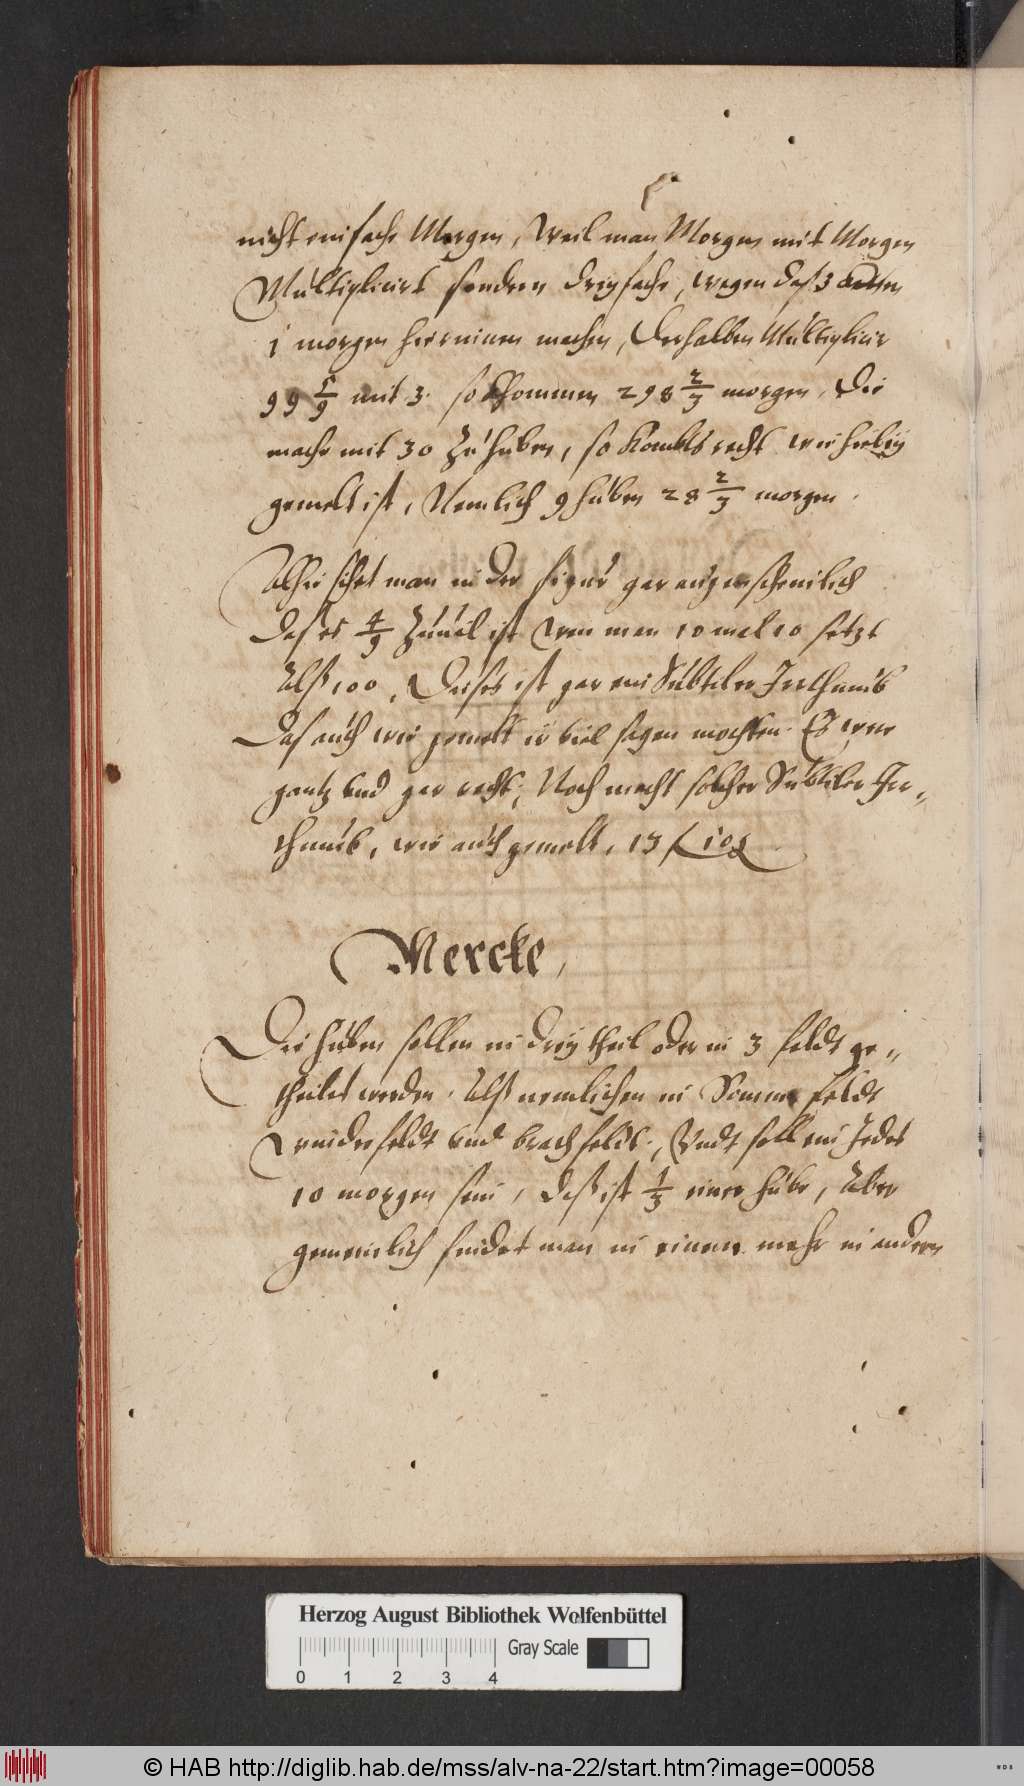 nicht einfache Morgen, weil man Morgen mit Morgen
Multiplicirt sondern dreyfache, wegen daß 3
1 morgen hierinnen machen, Derhalben Multiplicir
99 5/9 mit 3. so khommen 298 2/3 morgen, Die
mache mit 30 zu huben, so kombts recht wie hiebey
gemelt ist, Nemlich 9 huben 28 2/3 morgen.
Alhie sihet man in der figur gar augenscheinlich
das es 4/9 zuuil ist wen man 10 mal 10 setzt
Alß 100, Dieses ist gar ein Subtiler Irrthumb
Das auch wie gemelt viel sagen mochten. Es were
gantz vnd gar recht, Noch macht solcher Subtiler Irr„
thumb, wie auch gemelt, 13
Mercke,
Die huben sollen in drey theil oder in 3 feldt ge„
theilet werden. Alß nemlichen in Sommerfeldt
winderfeldt vnd brachfeldt, Vndt soll ein Jedes
10 morgen sein, daß ist 1/3 einer hube, Aber
gemeinlich findet man in einem mehr in andern
Herzog August Bibliothek Wolfenbüttel
Gray Scale
0 1 2 3 4
© HAB http://diglib.hab.de/mss/alv-na-22/start.htm?image=00058